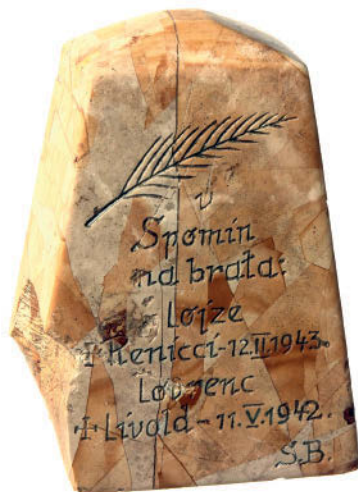 V
Spomin
na brata:
Lojze
+ Renicci - 12.II.1943.
Lovrenc
+ Livold - 11.V.1942.
S.B.